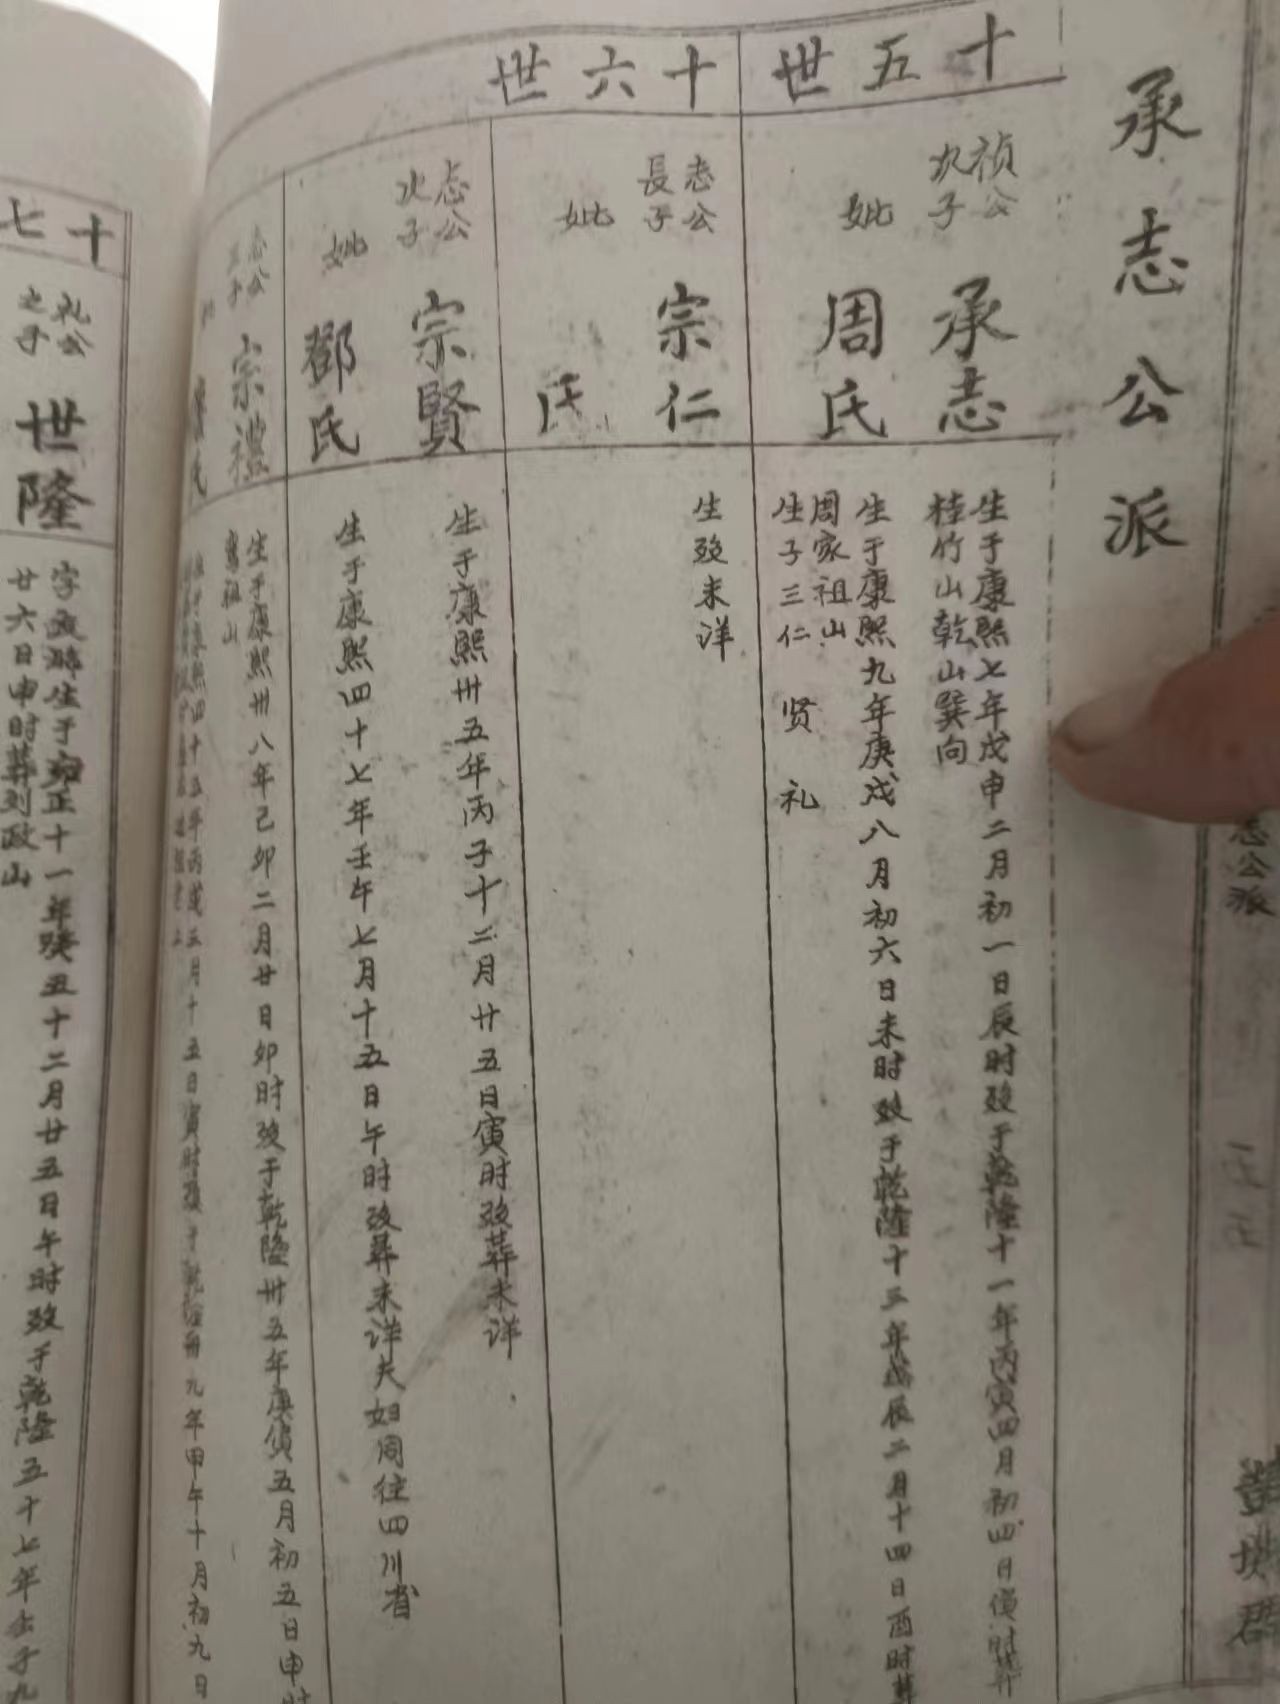 承志公派
十五世
祯公
次子
承志
妣
周氏
生于康熙七年戊申二月初一日辰时殁于乾隆十一年丙寅四月初四日寅时葬
桂竹山乾山巽向
生于康熙九年庚戌八月初六日未时殁于乾隆十三年戊辰二月十四日酉时葬
周家祖山
生子三仁 贤 礼
十六世
志公
長子
宗仁
妣
氏
生殁未洋
志公
次子
宗賢
妣
鄧氏
生于康熙卅五年丙子十二月廿五日寅时殁葬未洋
生于康熙四十七年壬午七月十五日午时殁葬未洋夫妇同往四川省
志公
三子
宗禮
氏
生于康熙卅八年己卯二月廿日卯时殁于乾隆卅五年庚寅五月初五日申时
祖山
康熙四十五年丙戌三月十五日寅时殁于乾隆卅九年甲午十月初九日
十七
礼公
之子
世隆
字 生于雍正十一年癸丑十二月廿五日午时殁于乾隆五十七年壬子九
廿六日申时葬刘政山
志公派